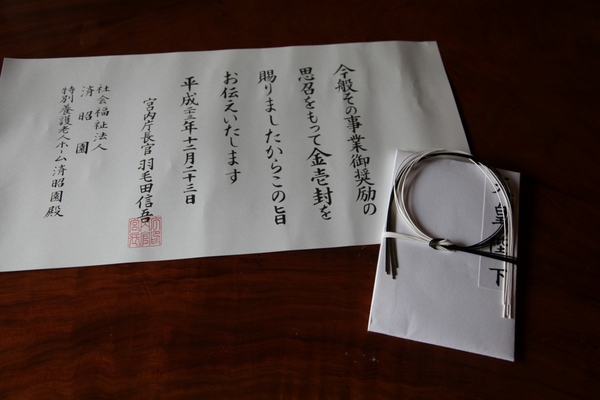 今般その事業御奨励の
思召をもって金壱封を
賜りましたからこの旨
お伝えいたします
平成二十三年十二月二十三日
宮内庁長官 羽毛田信吾
社会福祉法人
済昭園
特別養護老人ホーム済昭園殿
皇陛下